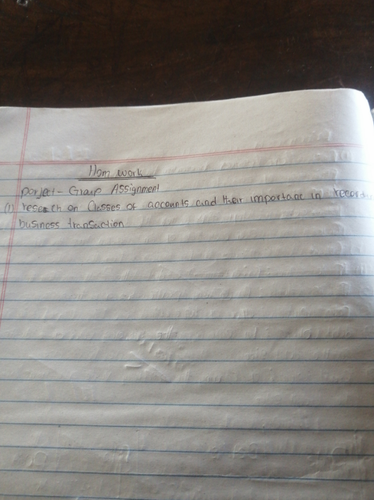 Hom work
porject - Group Assignment
(1) research on Classes of accounts and their importance in record
business transaction